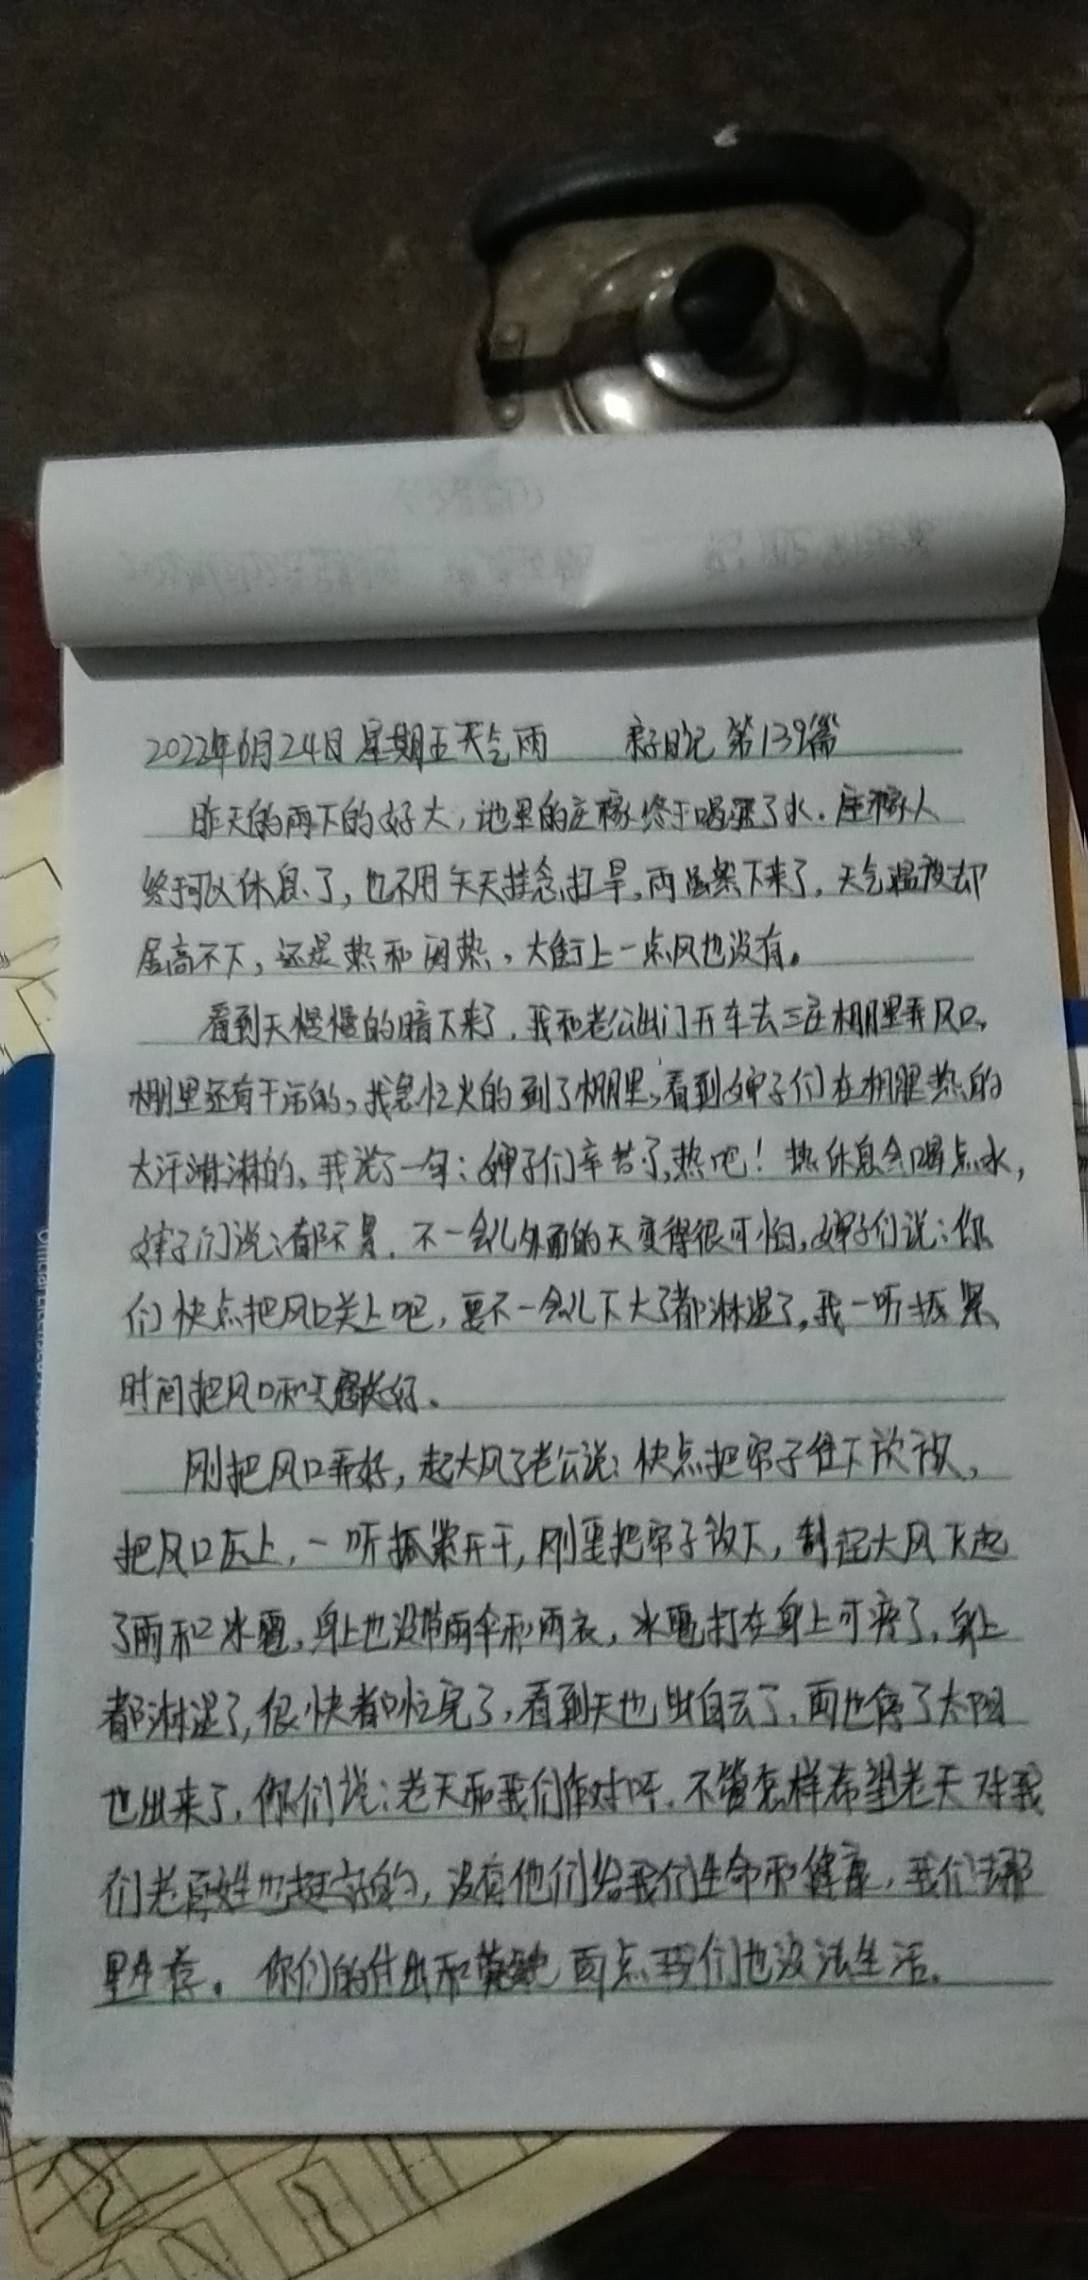 2022年6月24日星期五天气雨 亲子日记第139篇
昨天的雨下的好大，地里的庄稼终于喝了水．庄稼人
终于可以休息了，也不用天天挂念打旱，雨虽然下来了，天气温度却
居高不下，还是热和闷热，大街上一点风也没有。
看到天慢慢的暗下来了，我和老公出门开车去三庄棚里弄风口，
棚里还有干活的，我急忙火的到了棚里，看到婶子们在棚里热的
大汗淋淋的，我说了一句：婶子们辛苦了，热吧！热休息会喝点水，
婶子们说：都不累．不一会儿外面的天变得很可怕，婶子们说：你
们快点把风口关上吧，要不一会儿下大了都淋湿了，我一听抓紧
时间把风口和天窗关好．
刚把风口弄好，起大风了老公说：快点把帘子往下放放，
把风口压上，一听抓紧开干，刚要把帘子放下，刮起大风下起
了雨和冰雹，身上也没带雨伞和雨衣，冰雹打在身上可疼了，身上
都淋湿了，很快都忙完了，看到天也出白云了，雨也停了太阳
也出来了，你们说：老天和我们作对吓．不管怎样希望老天对我
们老百姓也挺好的，没有他们给我们生命和健康，我们去那
里生存。你们的付出和 雨点我们也没法生活．